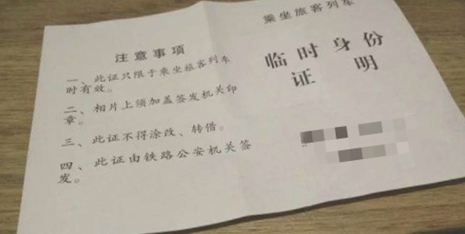 注意事项
一、此证只限于乘坐旅客列车
时有效。
二、相片上须加盖签发机关印
章。
三、此证不得涂改、转借。
四、此证由铁路公安机关签
发。
乘坐旅客列车
临时身份
证明